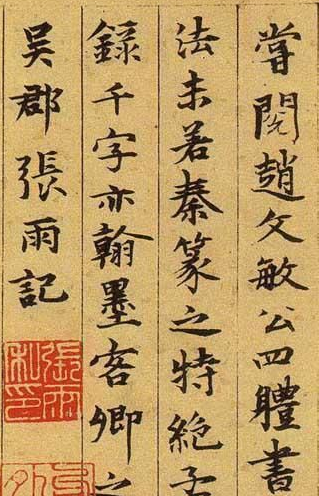 嘗閱趙文敏公四體書
法未若秦篆之特絕子
錄千字亦翰墨客卿之
吳郡張雨記
張雨私印